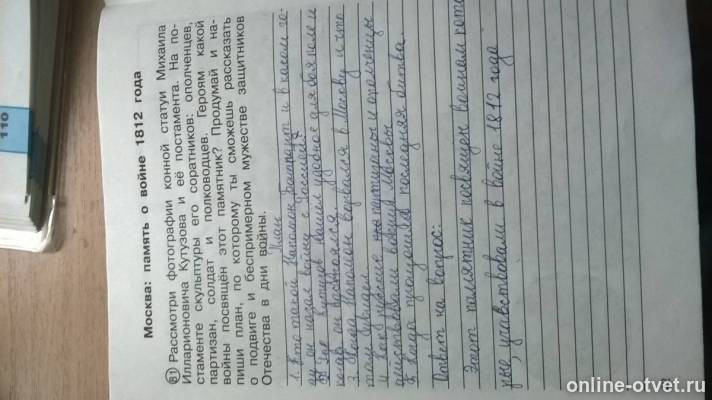 Москва: память о войне 1812 года
81 Рассмотри фотографии конной статуи Михаила
Илларионовича Кутузова и её постамента. На по-
стаменте скульптуры его соратников: ополченцев,
партизан, солдат и полководцев. Героям какой
войны посвящён этот памятник? Продумай и на-
пиши план, по которому ты сможешь рассказать
о подвиге и беспримерном мужестве защитников
Отечества в дни войны.
План
1. Кто такой Наполеон Бонапарт и в каком го-
ду он начал войну с Россией
2) Где Кутузов нашел удобное для боя поле и
когда он
3. Когда Наполеон ворвался в Москву и что
там увидел
4. Как партизаны и ополченцы
действовали вокруг Москвы
5 Когда произошла последняя битва.
Ответ на вопрос:
Этот памятник посвящен воинам кото
рые, учавствовали в войне 1812 года
110
online-otvet.ru